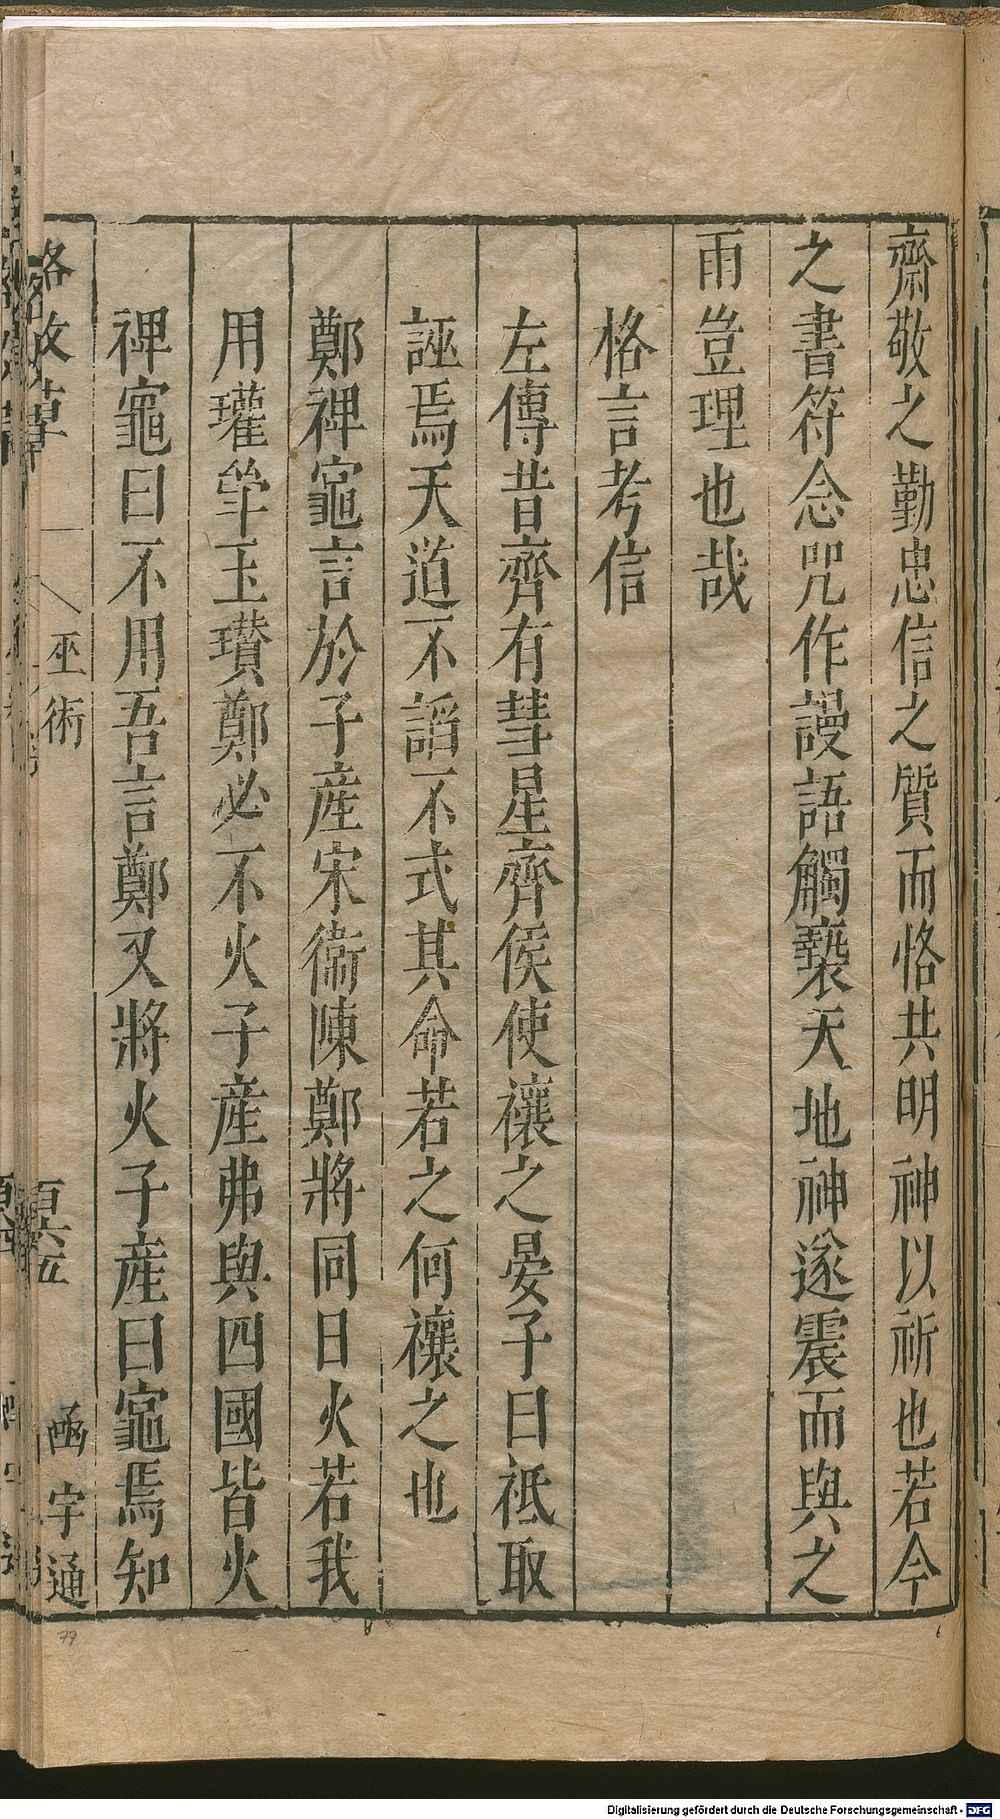 齋敬之勤忠信之質而恪共明神以祈也若今
之書符念咒作謾語觸褻天地神遂震而與之
雨豈理也哉
格言考信
左傳昔齊有彗星齊侯使禳之晏子曰祗取
誣焉天道不謟不式其命若之何禳之也
鄭裨竈言於子產宋衞陳鄭將同日火若我
用瓘斚玉瓚鄭必不火子產弗與四國皆火
裨竈曰不用吾言鄭又將火子產曰竈焉知
格致草
巫術
百六五
函宇通
77
Digitalisierung gefördert durch die Deutsche Forschungsgemeinschaft - DFG